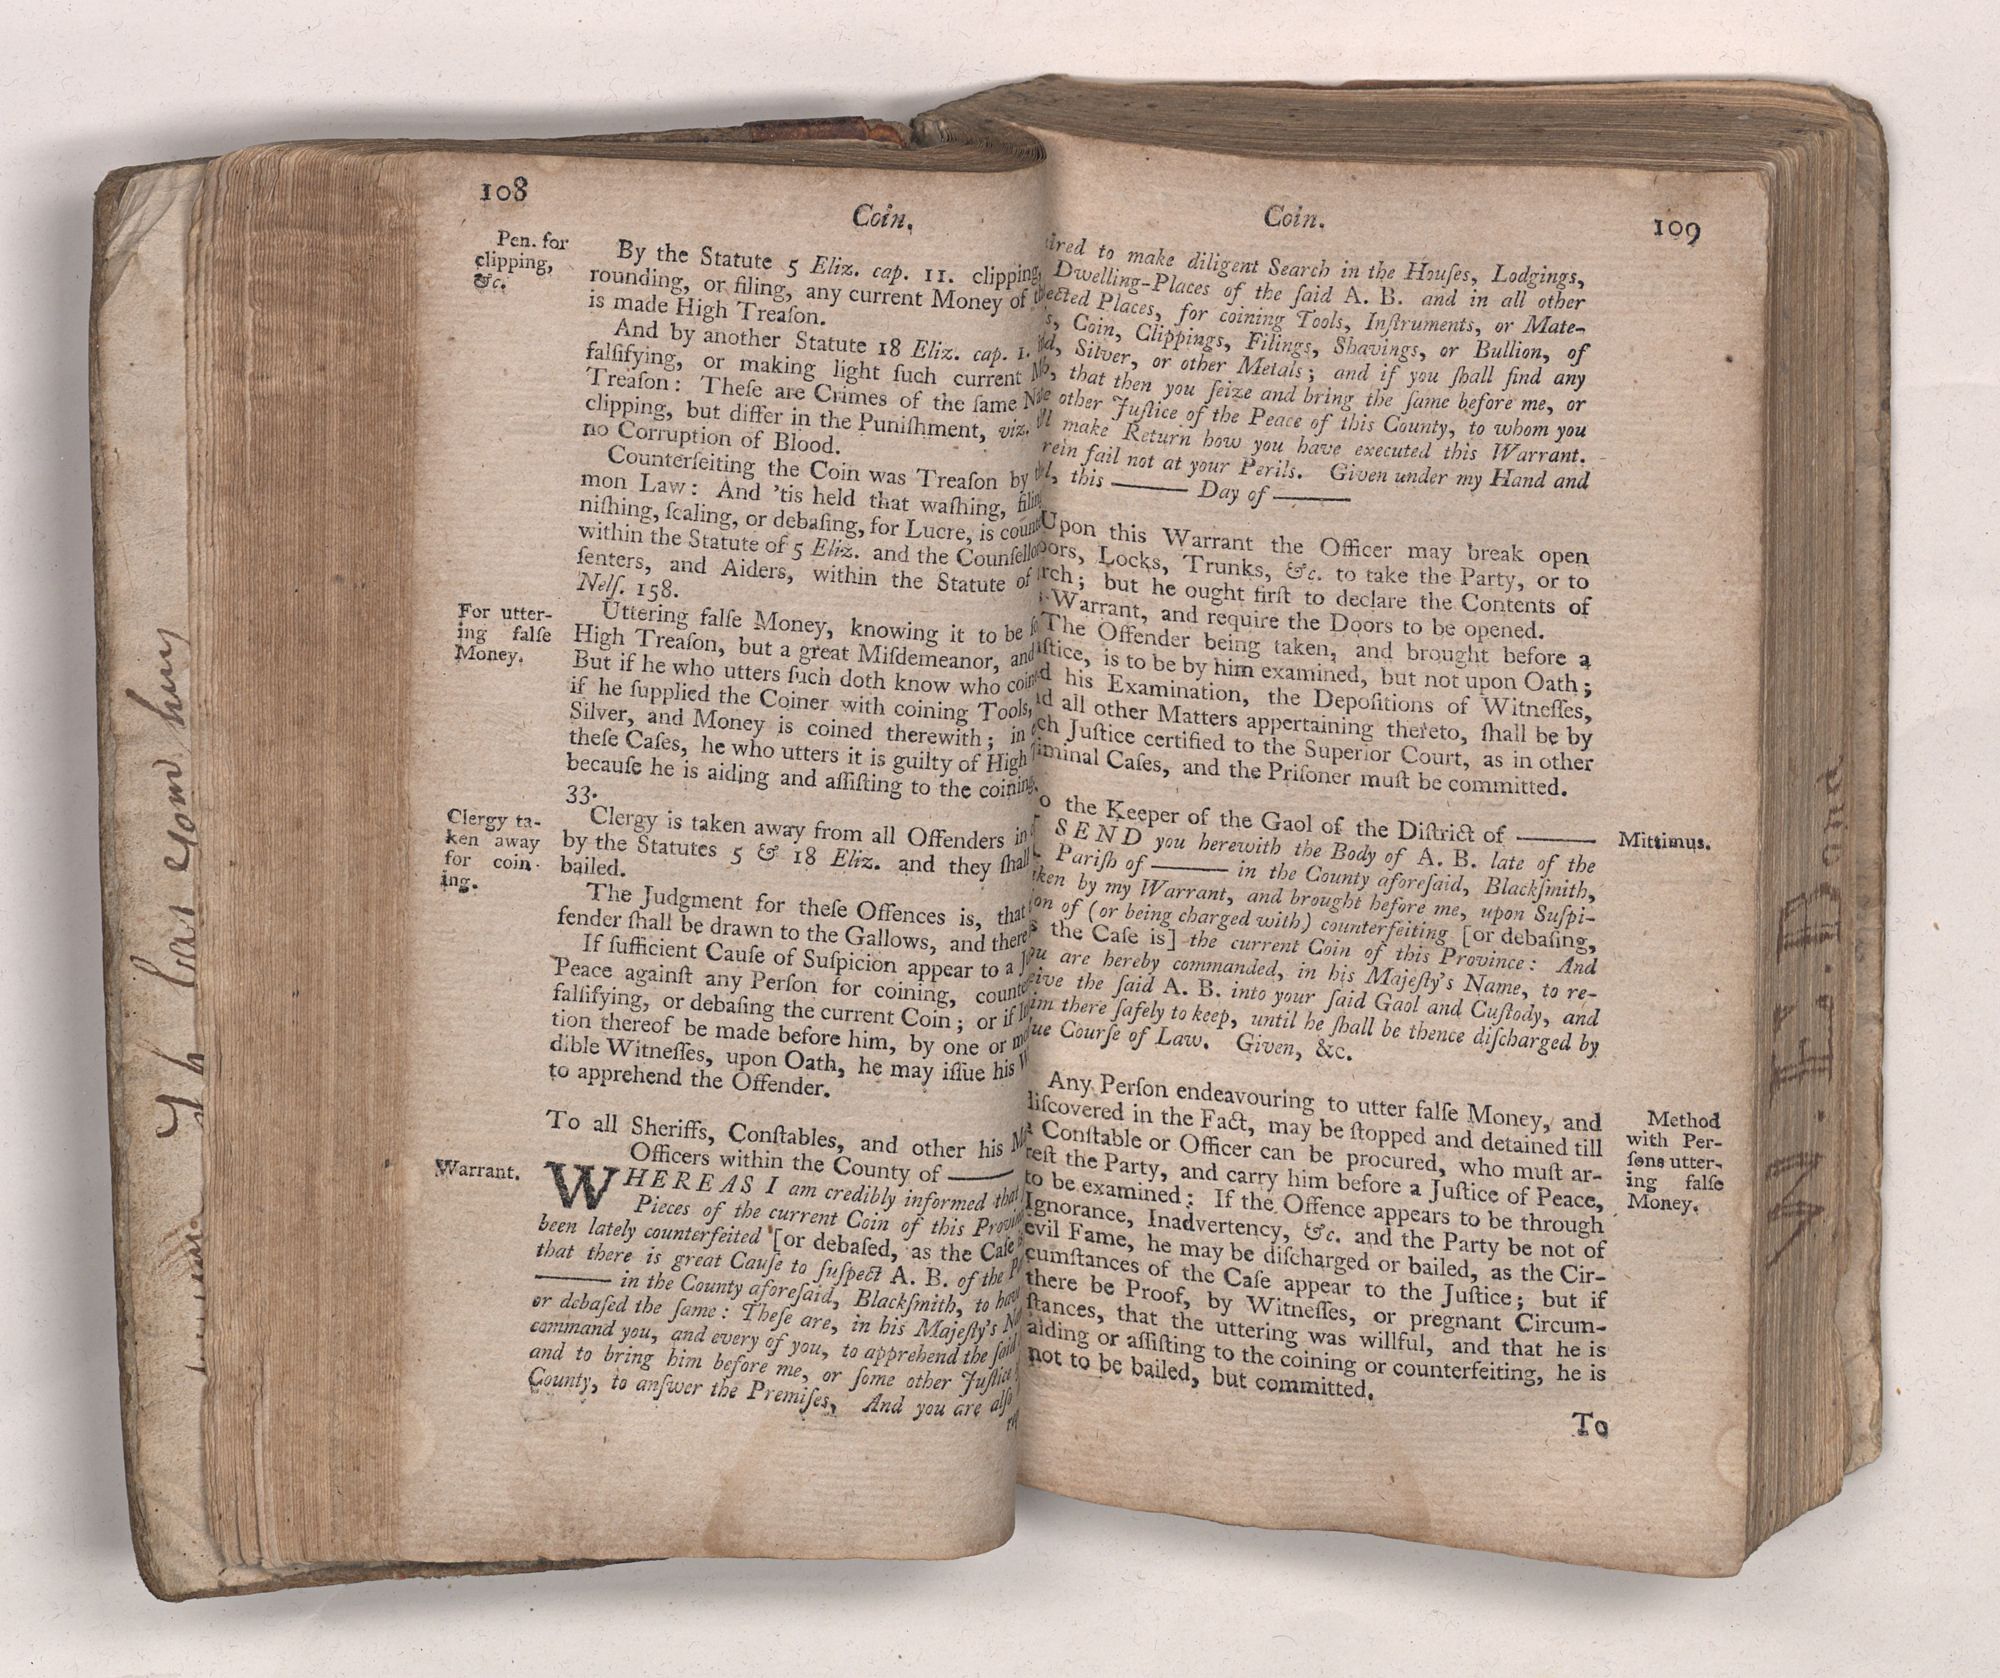 108
Coin.
Pen. for
clipping,
&c.
By the Statute 5 Eliz. cap. 11. clipping,
rounding, or filing, any current Money of
is made High Treaſon.
And by another Statute 18 Eliz. cap. 1.
falſifying, or making light ſuch current
Treaſon: Theſe are Crimes of the ſame
clipping, but differ in the Puniſhment, viz.
no Corruption of Blood.
Counterfeiting the Coin was Treaſon by
mon Law: And 'tis held that waſhing,
niſhing, ſcaling, or debaſing, for Lucre, is
within the Statute of 5 Eliz. and the
ſenters, and Aiders, within the Statute of
Nelſ. 158.
For utter-
ing falſe
Money.
Uttering falſe Money, knowing it to be
High Treaſon, but a great Miſdemeanor, and
But if he who utters ſuch doth know who
if he ſupplied the Coiner with coining Tools,
Silver, and Money is coined therewith; in
theſe Caſes, he who utters it is guilty of High
becauſe he is aiding and aſſiſting to the coining.
33.
Clergy ta-
ken away
for coin-
ing.
Clergy is taken away from all Offenders in
by the Statutes 5 & 18 Eliz. and they ſhall
bailed.
The Judgment for theſe Offences is, that
fender ſhall be drawn to the Gallows, and there
If ſufficient Cauſe of Suſpicion appear to a
Peace againſt any Perſon for coining,
falſifying, or debaſing the current Coin; or if
tion thereof be made before him, by one or
dible Witneſſes, upon Oath, he may iſſue his
to apprehend the Offender.
To all Sheriffs, Conſtables, and other his
Officers within the County of ———
Warrant.
WHEREAS I am credibly informed that
Pieces of the current Coin of this
been lately counterfeited [or debaſed, as the Caſe
that there is great Cauſe to ſuſpect A. B. of the
——— in the County aforeſaid, Blackſmith, to have
or debaſed the ſame: Theſe are, in his Majeſty's
command you, and every of you, to apprehend the ſaid
and to bring him before me, or ſome other Juſtice
County, to anſwer the Premiſes, And you are alſo
Coin.
109
to make diligent Search in the Houſes, Lodgings,
Dwelling-Places of the ſaid A. B. and in all other
Places, for coining Tools, Inſtruments, or Mate-
Coin, Clippings, Filings, Shavings, or Bullion, of
Silver, or other Metals; and if you ſhall find any
that then you ſeize and bring the ſame before me, or
other Juſtice of the Peace of this County, to whom you
make Return how you have executed this Warrant.
fail not at your Perils. Given under my Hand and
this ——— Day of ———
Upon this Warrant the Officer may break open
Locks, Trunks, &c. to take the Party, or to
but he ought firſt to declare the Contents of
Warrant, and require the Doors to be opened.
The Offender being taken, and brought before a
is to be by him examined, but not upon Oath;
his Examination, the Depoſitions of Witneſſes,
all other Matters appertaining thereto, ſhall be by
Juſtice certified to the Superior Court, as in other
Caſes, and the Priſoner muſt be committed.
the Keeper of the Gaol of the Diſtrict of ———
Mittimus.
SEND you herewith the Body of A. B. late of the
Pariſh of ——— in the County aforeſaid, Blackſmith,
by my Warrant, and brought before me, upon Suſpi-
of (or being charged with) counterfeiting [or debaſing,
the Caſe is] the current Coin of this Province: And
are hereby commanded, in his Majeſty's Name, to re-
the ſaid A. B. into your ſaid Gaol and Cuſtody, and
there ſafely to keep, until he ſhall be thence diſcharged by
Courſe of Law. Given, &c.
Any Perſon endeavouring to utter falſe Money, and
diſcovered in the Fact, may be ſtopped and detained till
a Conſtable or Officer can be procured, who muſt ar-
reſt the Party, and carry him before a Juſtice of Peace,
to be examined: If the Offence appears to be through
Ignorance, Inadvertency, &c. and the Party be not of
evil Fame, he may be diſcharged or bailed, as the Cir-
cumſtances of the Caſe appear to the Juſtice; but if
there be Proof, by Witneſſes, or pregnant Circum-
ſtances, that the uttering was willful, and that he is
aiding or aſſiſting to the coining or counterfeiting, he is
not to be bailed, but committed.
Method
with Per-
ſons utter-
ing falſe
Money.
To